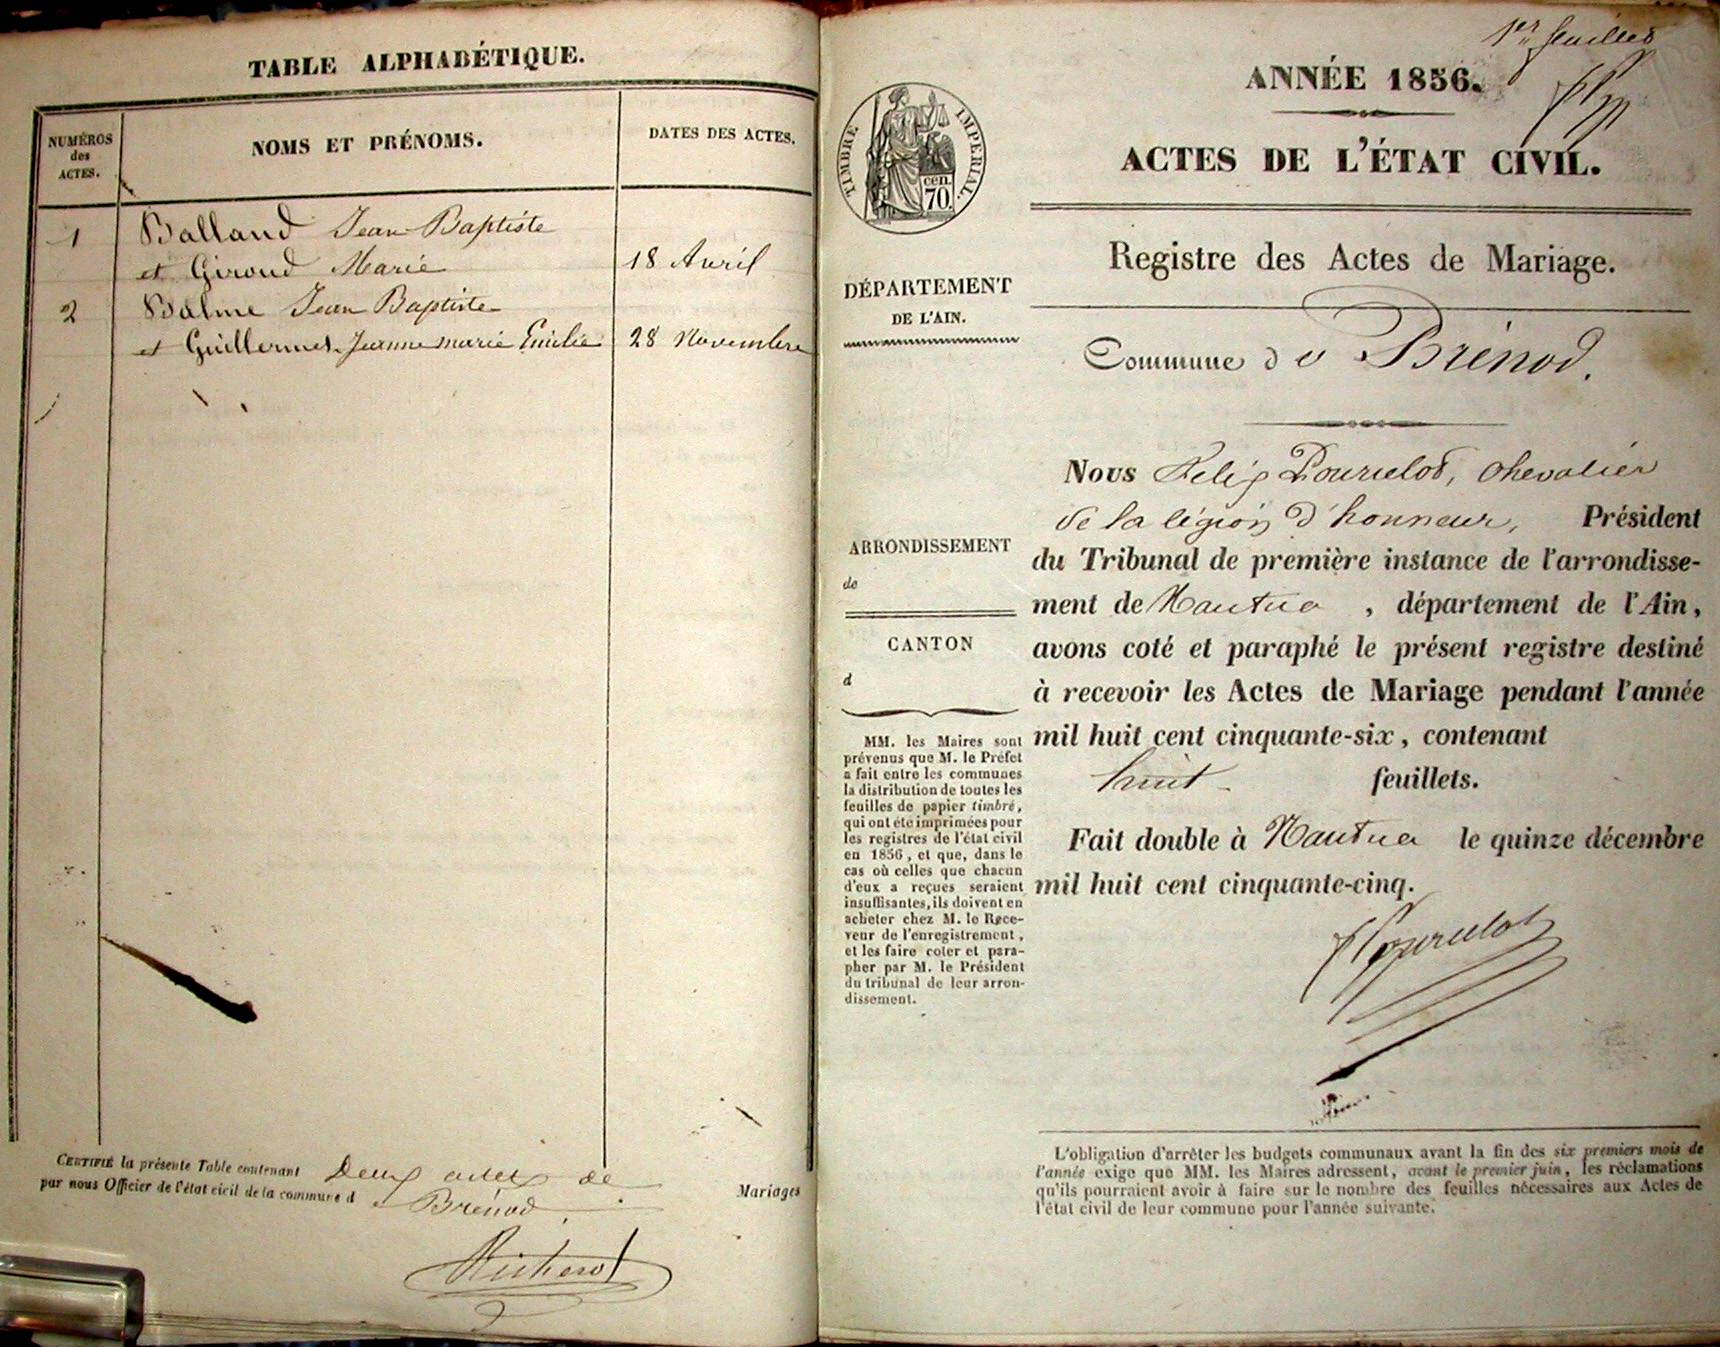 TABLE ALPHABÉTIQUE.
NUMÉROS
des
ACTES.
NOMS ET PRÉNOMS.
DATES DES ACTES.
1 Balland Jean Baptiste
et Giroud Marie 18 Avril
2 Balme Jean Baptiste
et Guillermet Jeanne marie Emilie 28 Novembre
CERTIFIÉ la présente Table contenant Deux actes de Mariages
par nous Officier de l'état civil de la commune d e Brénod
1er feuillet
ANNÉE 1856.
ACTES DE L'ÉTAT CIVIL.
TIMBRE IMPERIAL.
cen.
70.
Registre des Actes de Mariage.
DÉPARTEMENT
DE L'AIN.
Commune d e Brénod.
Nous Félix Pourcelot, chevalier
de la légion d'honneur, Président
du Tribunal de première instance de l'arrondisse-
ment de Nantua , département de l'Ain,
avons coté et paraphé le présent registre destiné
à recevoir les Actes de Mariage pendant l'année
mil huit cent cinquante-six, contenant
huit feuillets.
Fait double à Nantua le quinze décembre
mil huit cent cinquante-cinq.
ARRONDISSEMENT
de
CANTON
d
MM. les Maires sont
prévenus que M. le Préfet
a fait entre les communes
la distribution de toutes les
feuilles de papier timbré,
qui ont été imprimées pour
les registres de l'état civil
en 1856, et que, dans le
cas où celles que chacun
d'eux a reçues seraient
insuffisantes, ils doivent en
acheter chez M. le Rece-
veur de l'enregistrement,
et les faire coter et para-
pher par M. le Président
du tribunal de leur arron-
dissement.
L'obligation d'arrêter les budgets communaux avant la fin des six premiers mois de
l'année exige que MM. les Maires adressent, avant le premier juin, les réclamations
qu'ils pourraient avoir à faire sur le nombre des feuilles nécessaires aux Actes de
l'état civil de leur commune pour l'année suivante.